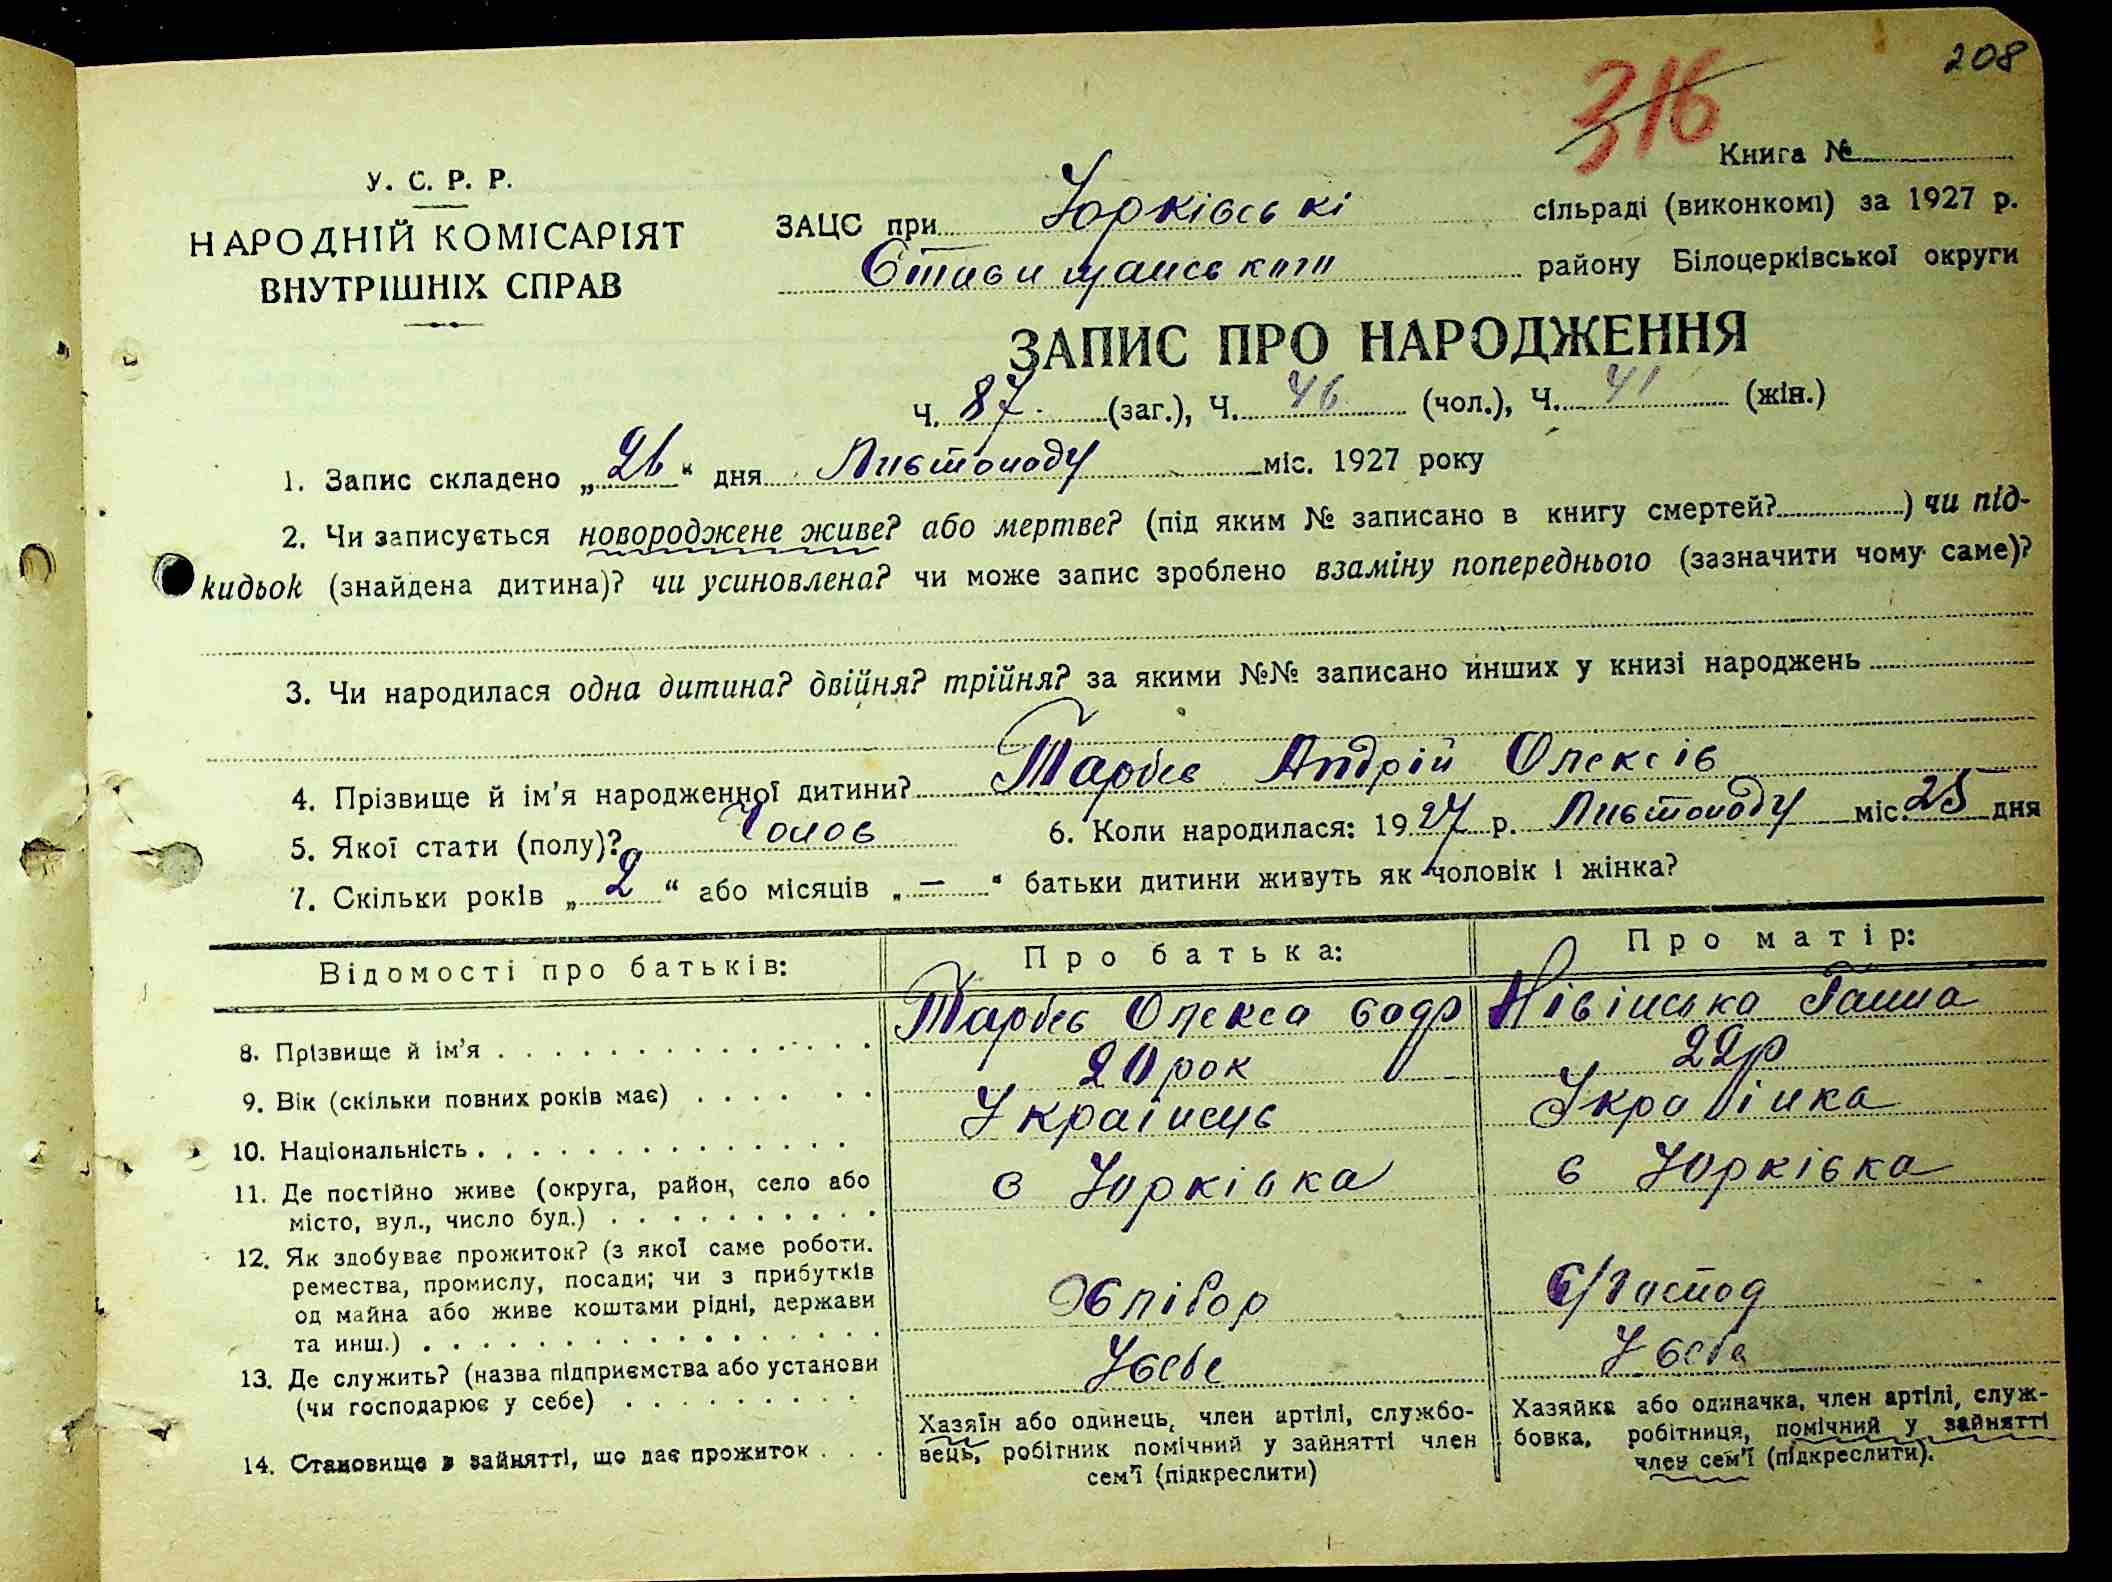 208
316
Книга №
У. С. Р. Р.
НАРОДНІЙ КОМІСАРІЯТ
ВНУТРІШНІХ СПРАВ
ЗАЦС при Юрківські сільраді (виконкомі) за 1927 р.
Ставищанського району Білоцерківської округи
ЗАПИС ПРО НАРОДЖЕННЯ
Ч. 87 (заг.), Ч. 46 (чол.), Ч. 41 (жін.)
1. Запис складено „26“ дня Листопаду міс. 1927 року
2. Чи записується новороджене живе? або мертве? (під яким № записано в книгу смертей?) чи під-
кидьок (знайдена дитина)? чи усиновлена? чи може запис зроблено взаміну попереднього (зазначити чому саме)?
3. Чи народилася одна дитина? двійня? трійня? за якими №№ записано инших у книзі народжень
4. Прізвище й ім’я народженної дитини? Андрій Олексів
5. Якої стати (полу)? Чолов 6. Коли народилася: 1927 р. Листопаду міс. 25 дня
7. Скільки років „2“ або місяців „—“ батьки дитини живуть як чоловік і жінка?
Відомості про батьків: Про батька: Про матір:
8. Прізвище й ім’я Олекса Ганна
9. Вік (скільки повних років має) 20 рок 22 р
10. Національність Українець Українка
11. Де постійно живе (округа, район, село або
місто, вул., число буд.) с Юрківка с Юрківка
12. Як здобуває прожиток? (з якої саме роботи.
ремества, промислу, посади; чи з прибутків
од майна або живе коштами рідні, держави
та инш.) Хлібор с/господ
13. Де служить? (назва підприємства або установи
(чи господарює у себе) У себе У себе
14. Становище в зайнятті, що дає прожиток
Хазяїн або одинець, член артілі, службо-
вець, робітник помічний у зайнятті член
сем’ї (підкреслити)
Хазяйка або одиначка, член артілі, служ-
бовка, робітниця, помічний у зайнятті
член сем’ї (підкреслити).